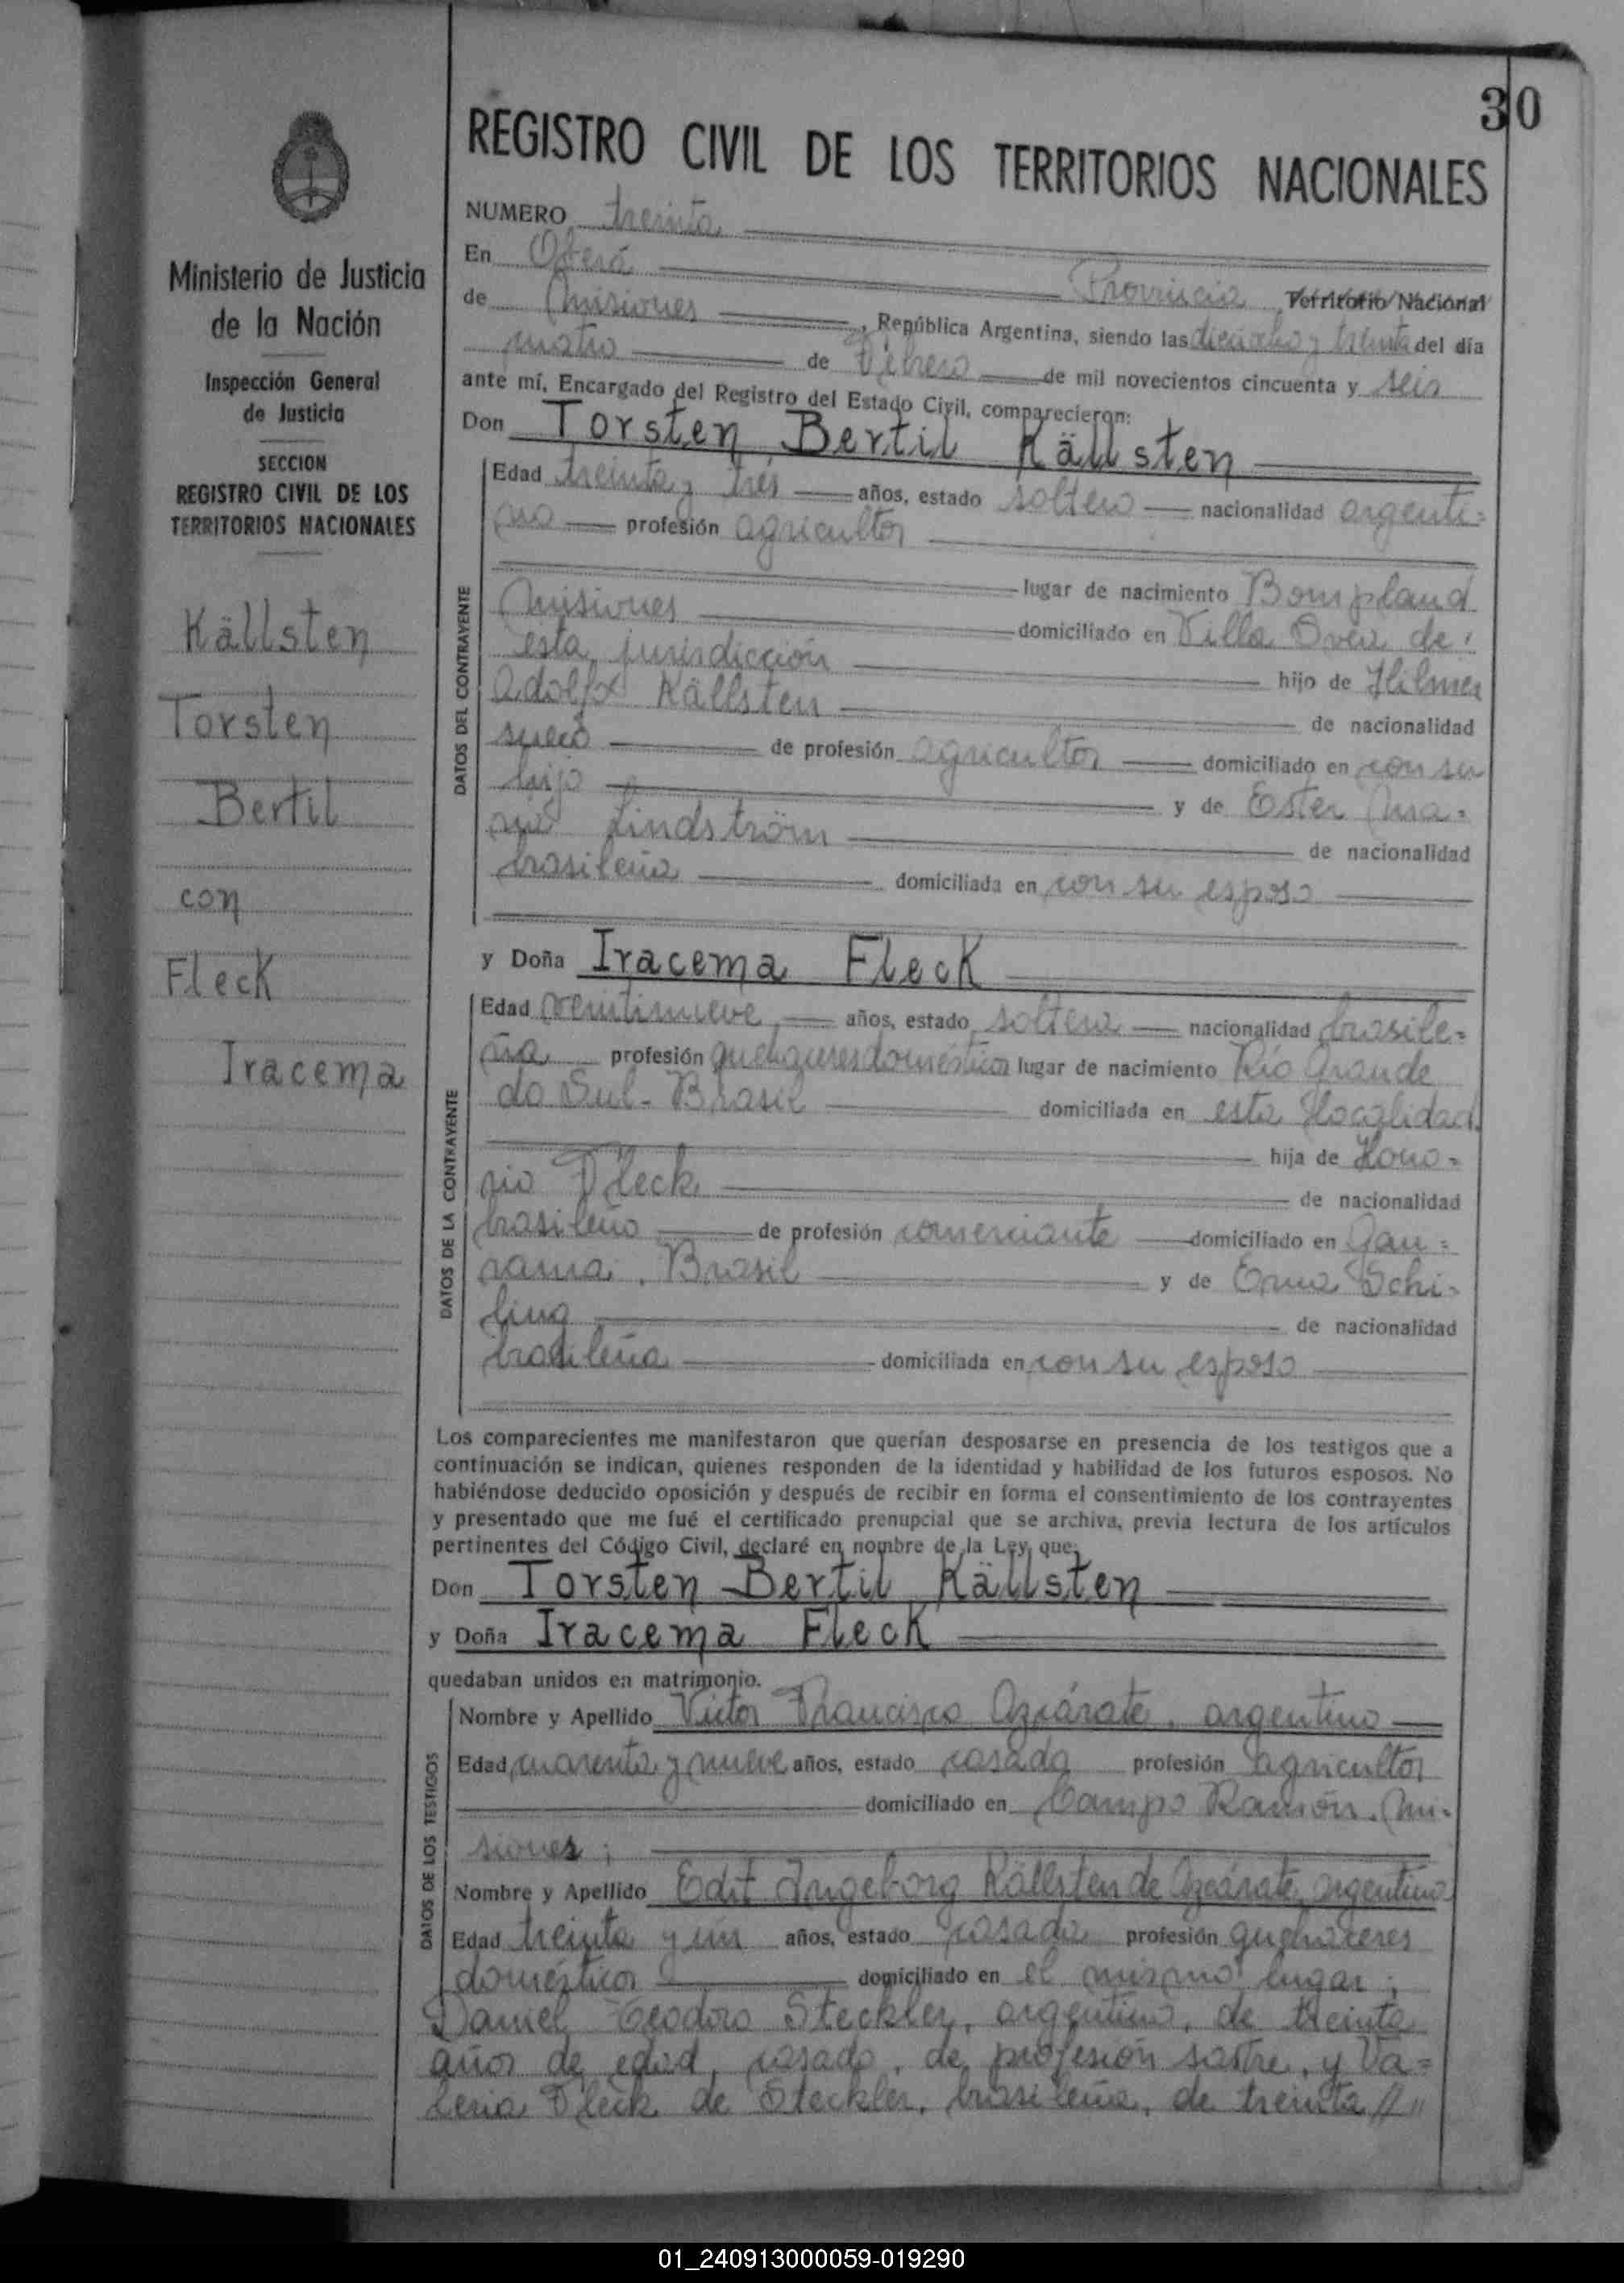 30
REGISTRO CIVIL DE LOS TERRITORIOS NACIONALES
Ministerio de Justicia
de la Nación
Inspección General
de Justicia
SECCION
REGISTRO CIVIL DE LOS
TERRITORIOS NACIONALES
Källsten
Torsten
Bertil
con
Fleck
Iracema
NUMERO treinta
En Oberá
Provincia Territorio Nacional
de Misiones, República Argentina, siendo las dieciocho y treinta del día
cuatro de Febrero de mil novecientos cincuenta y seis
ante mí, Encargado del Registro del Estado Civil, comparecieron:
Don Torsten Bertil Källsten
DATOS DEL CONTRAYENTE
Edad treinta y tres años, estado soltero nacionalidad argenti=
no profesión agricultor
lugar de nacimiento Bompland
Misiones domiciliado en Villa Svea de
esta jurisdicción hijo de Hilmer
Adolfo Källsten de nacionalidad
sueco de profesión agricultor domiciliado en con su
hijo y de Ester Ma=
ria Lindström de nacionalidad
brasileña domiciliada en con su esposo
y Doña Iracema Fleck
DATOS DE LA CONTRAYENTE
Edad veintinueve años, estado soltera nacionalidad brasile=
ña profesión quehaceres domésticos lugar de nacimiento Río Grande
do Sul- Brasil domiciliada en esta localidad.
hija de Hono=
rio Fleck de nacionalidad
brasileño de profesión comerciante domiciliado en Gau=
rama, Brasil y de Erna Schi=
ling de nacionalidad
brasileña domiciliada en con su esposo
Los comparecientes me manifestaron que querían desposarse en presencia de los testigos que a
continuación se indican, quienes responden de la identidad y habilidad de los futuros esposos. No
habiéndose deducido oposición y después de recibir en forma el consentimiento de los contrayentes
y presentado que me fué el certificado prenupcial que se archiva, previa lectura de los artículos
pertinentes del Código Civil, declaré en nombre de la Ley, que:
Don Torsten Bertil Källsten
y Doña Iracema Fleck
quedaban unidos en matrimonio.
DATOS DE LOS TESTIGOS
Nombre y Apellido Victor Francisco Azcárate, argentino
Edad cuarenta y nueve años, estado casado profesión agricultor
domiciliado en Campo Ramón. Mi=
siones;
Nombre y Apellido Edit Ingeborg Källsten de Azcárate, argentina
Edad treinta y un años, estado casada profesión quehaceres
domésticos domiciliado en el mismo lugar;
Daniel Teodoro Steckler, argentino, de treinta
años de edad, casado, de profesión sastre, y Va=
leria Fleck de Steckler, brasileña, de treinta //"
01_240913000059-019290